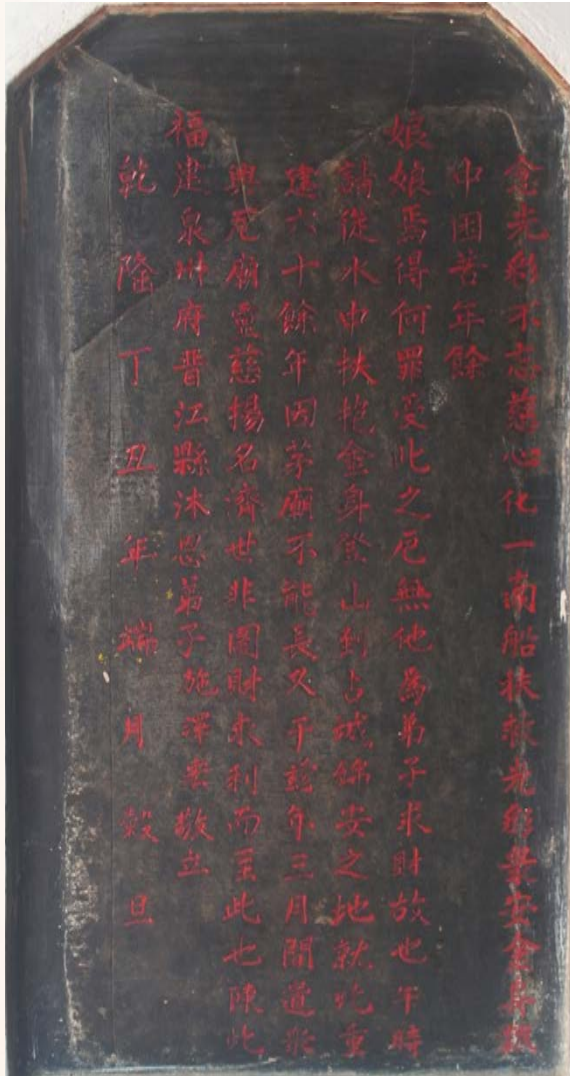 念光彩不忘慈心化一南船扶救光彩眾安金身
中困苦年餘
娘娘焉得何罪受此之厄無他為弟子求財故也午時
請從水中扶抱金身登山到占城錦安之地就此重
建六十餘年因茅廟不能長久乎茲年三月間遵眾
興瓦廟靈慈揚名濟世非圖財求利而至此也陳此
福建泉州府晉江縣沐恩弟子施澤敬立
乾隆丁丑年端月穀旦